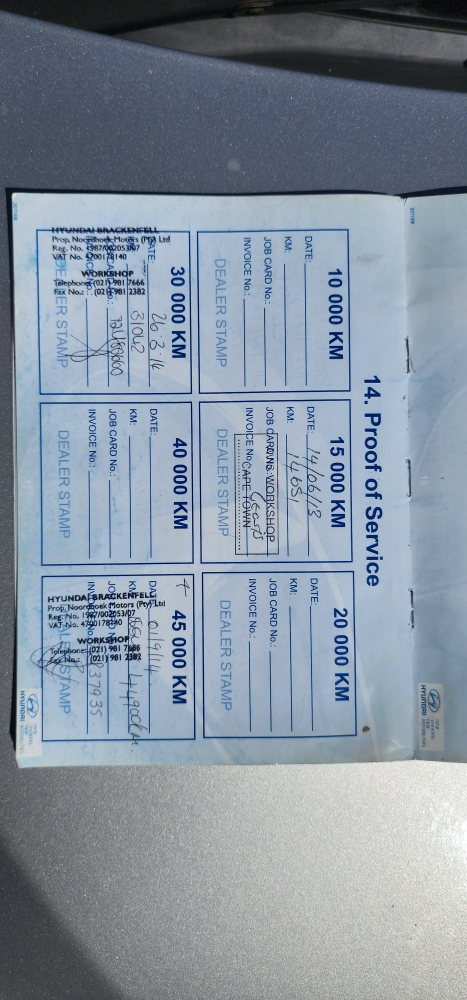 14. Proof of Service
10 000 KM
DATE:
KM:
JOB CARD No.:
INVOICE No.:
DEALER STAMP
15 000 KM
DATE: 14/06/13
KM: 14651
JOB CARD No.:
WORKSHOP
INVOICE No.:
CAPE TOWN
DEALER STAMP
20 000 KM
DATE:
KM:
JOB CARD No.:
INVOICE No.:
DEALER STAMP
30 000 KM
DATE: 26.3.14
KM: 31042
DEALER STAMP
HYUNDAI BRACKENFELL
Prop. Noordhoek Motors (Pty) Ltd
Reg. No. 1987/002053/07
VAT No. 4700178140
WORKSHOP
Telephone: (021) 981 7666
Fax No.: (021) 981 2382
40 000 KM
DATE:
KM:
JOB CARD No.:
INVOICE No.:
DEALER STAMP
45 000 KM
DATE:
KM: 44900km
37935
DEALER STAMP
HYUNDAI BRACKENFELL
Prop. Noordhoek Motors (Pty) Ltd
Reg. No. 1987/002053/07
VAT No. 4700178140
WORKSHOP
Telephone: (021) 981 7666
Fax No.: (021) 981 2382
HYUNDAI
NEW THINKING.
NEW POSSIBILITIES.
HYUNDAI
NEW THINKING.
NEW POSSIBILITIES.